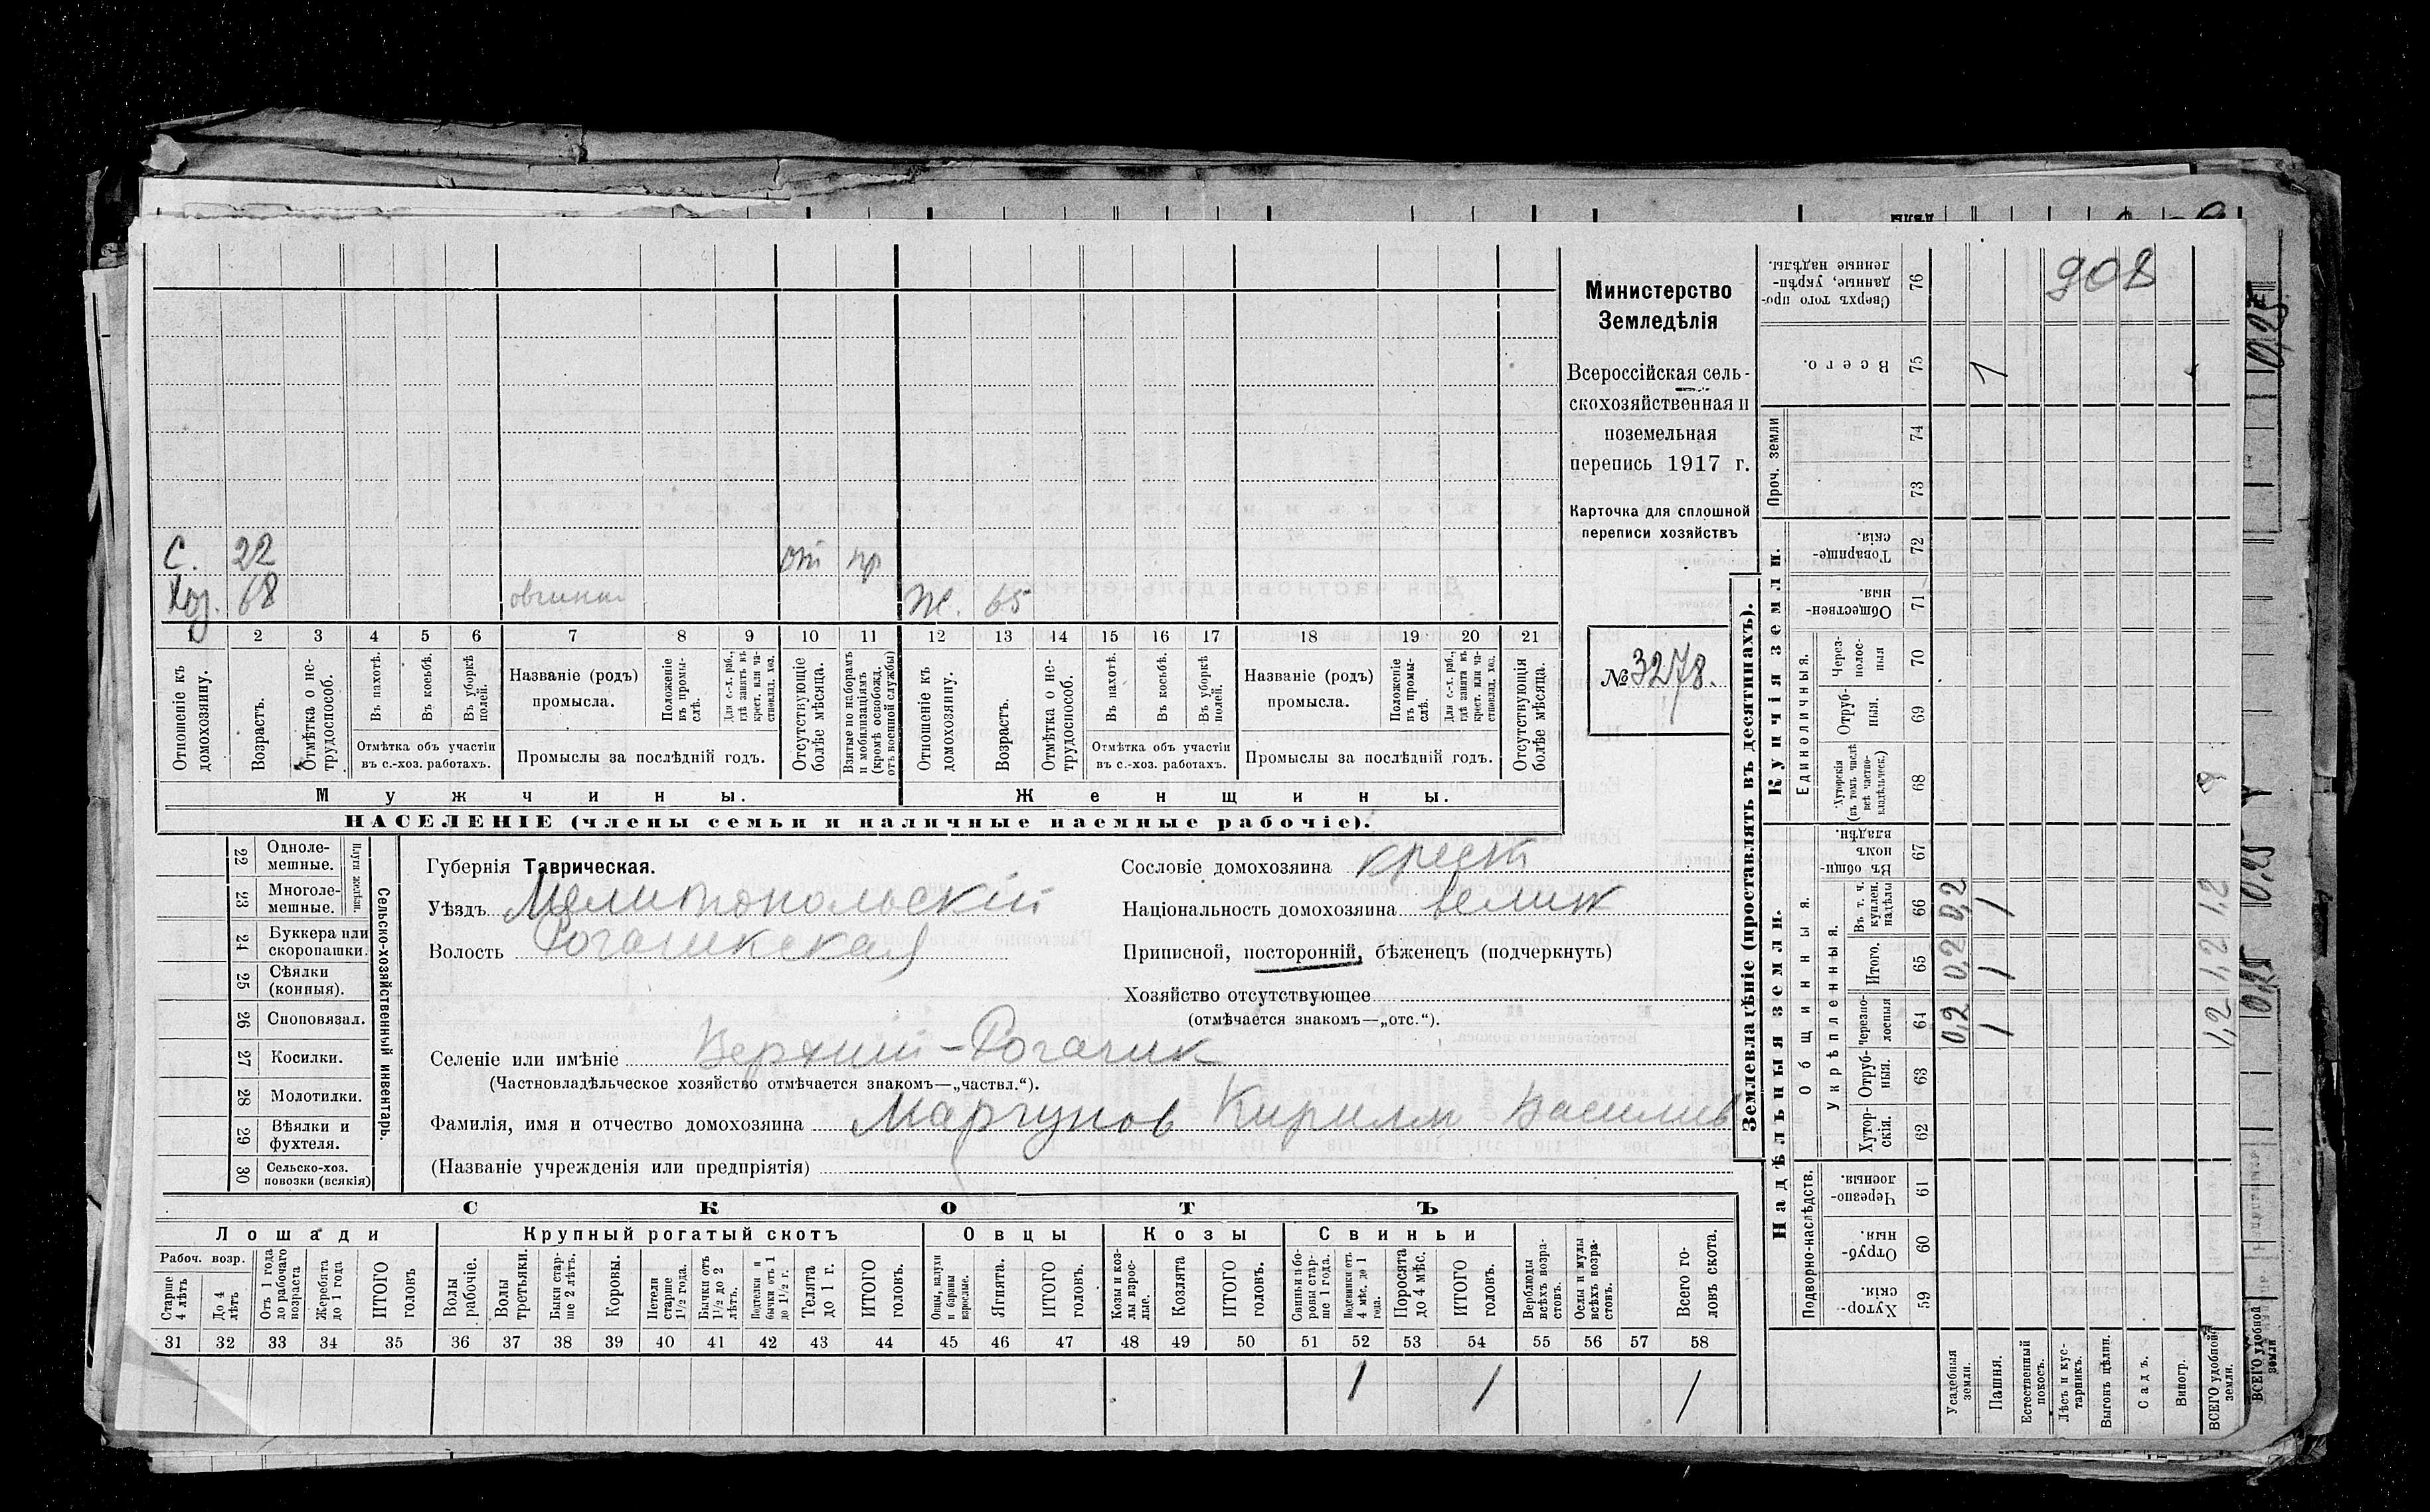 908
Министерство
Земледѣлія
Всероссійская сель-
скохозяйственная и
поземельная
перепись 1917 г.
Карточка для сплошной
переписи хозяйствъ
№ 3278.
С. 22 от пр
Хоз. 68 Ж. 65
1 2 3 4 5 6 7 8 9 10 11 12 13 14 15 16 17 18 19 20 21
Отношеніе къ домохозяину.
Возрастъ.
Отмѣтка о не-трудоспособ.
Въ пахотѣ.
Въ косьбѣ.
Въ уборкѣ полей.
Отмѣтка объ участіи
въ с.-хоз. работахъ.
Названіе (родъ)
промысла.
Положеніе въ промы-слѣ.
Для с.-х. раб., гдѣ занятъ въ крест. или ча-стновлад. хоз.
Промыслы за послѣдній годъ.
Отсутствующіе болѣе мѣсяца.
Взятые по наборамъ и мобилизаціямъ (кромѣ освобожд. отъ военной службы)
Отношеніе къ домохозяину.
Возрастъ.
Отмѣтка о не-трудоспособ.
Въ пахотѣ.
Въ косьбѣ.
Въ уборкѣ полей.
Отмѣтка объ участіи
въ с.-хоз. работахъ.
Названіе (родъ)
промысла.
Положеніе въ промы-слѣ.
Для с.-х. раб., гдѣ занята въ крест. или ча-стновлад. хоз.
Промыслы за послѣдній годъ.
Отсутствующія болѣе мѣсяца.
Мужчины. Женщины.
НАСЕЛЕНІЕ (члены семьи и наличные наемные рабочіе).
22 Одноле-мешные.
23 Многоле-мешные.
Плуги желѣзн.
24 Буккера или скоропашки.
25 Сѣялки (конныя).
26 Сноповязал.
27 Косилки.
28 Молотилки.
29 Вѣялки и фухтеля.
30 Сельско-хоз. повозки (всякія)
Сельско-хозяйственный инвентарь.
Губернія Таврическая.
Уѣздъ Мелитопольскій
Волость Рогачикская
Сословіе домохозяина крест
Національность домохозяина велик
Приписной, посторонній, бѣженецъ (подчеркнуть)
Хозяйство отсутствующее
(отмѣчается знакомъ—„отс.“).
Селеніе или имѣніе Верхний-Рогачик
(Частновладѣльческое хозяйство отмѣчается знакомъ—„частвл.“).
Фамилія, имя и отчество домохозяина Маргунов Кирилл Василив
(Названіе учрежденія или предпріятія)
СКОТЪ
Лошади Крупный рогатый скотъ Овцы Козы Свиньи
Рабоч. возр.
Старше 4 лѣтъ
До 4 лѣтъ
Отъ 1 года до рабочаго возраста
Жеребята до 1 года
ИТОГО головъ
Волы рабочіе.
Волы третьяки.
Быки стар-ше 2 лѣтъ.
Коровы.
Нетели старше 1½ года.
Бычки отъ 1½ до 2 лѣтъ.
Подтелки и бычки отъ 1 до 1½ г.
Телята до 1 г.
ИТОГО головъ.
Овцы, валухи и бараны взрослые.
Ягнята.
ИТОГО головъ.
Козы и коз-лы взрос-лые.
Козлята
ИТОГО головъ.
Свиньи и бо-ровы стар-ше 1 года.
Подсвинки отъ 4 мѣс. до 1 года.
Поросята до 4 мѣс.
ИТОГО головъ.
Верблюды всѣхъ возра-стовъ.
Ослы и мулы всѣхъ возра-стовъ.
Всего го-ловъ скота.
31 32 33 34 35 36 37 38 39 40 41 42 43 44 45 46 47 48 49 50 51 52 53 54 55 56 57 58
1 1 1
Землевладѣніе (проставлять въ десятинахъ).
Купчія земли.
Надѣльныя земли.
Сверхъ того про-данные, укрѣп-ленные надѣлы. 76
Всего. 75 1
Проч. земли 74
73
Товарище-скія. 72
Обществен-ныя. 71
Единоличныя.
Через-полос-ныя 70
Отруб-ныя. 69
Хуторскія (въ томъ числѣ всѣ частно-владѣльческ.) 68
Общинныя.
Въ общин-номъ владѣн. 67
Укрѣпленныя.
Въ т. ч. куплен. надѣлы 66 0,2 1 1,2
Итого. 65 0,2 1 1,2
Черезпо-лосныя 64 0,2 1 1,2
Отруб-ныя. 63
Хутор-скія. 62
Подворно-наслѣдств.
Черезпо-лосныя. 61
Отруб-ныя 60
Хутор-скія. 59
Усадебныя земли.
Пашня.
Естественный покосъ.
Лѣсъ и кус-тарникъ.
Выгонъ цѣлин.
Садъ.
Виногр.
ВСЕГО удобной земли.
ВСЕГО удобной земли
0,25